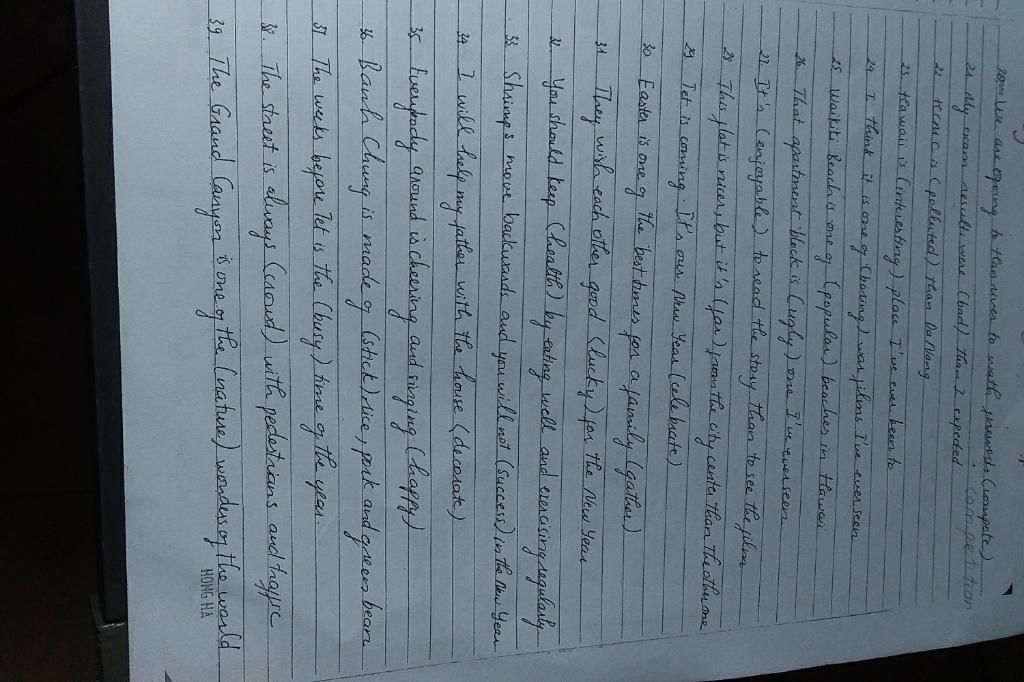 20. We are going to the river to watch fireworks (compete)
competition
21 My exam results were (bad) than I expected
22 HCMC is (polluted) than Da Nang
23. Hawaii is (interesting) place I've ever been to
24 I think it is one of (boring) war films I've ever seen
25 Waikiki Beach is one of (popular) beaches in Hawaii
26 That apartment block is (ugly) one I've ever seen
27. It's (enjoyable) to read the story than to see the film
28 This flat is nicer, but it's (far) from the city center than the other one
29 Tet is coming. It's our New Year (celebrate)
30 Easter is one of the best times for a family (gather)
31 They wish each other good (lucky) for the New Year
32 You should keep (health) by eating well and exercising regularly
33 Shrimps move backwards and you will not (success) in the New Year
34 I will help my father with the house (decorate)
35 Everybody around is cheering and singing (happy)
36 Banh Chung is made of (stick) rice, pork and green bean
37 The weeks before Tet is the (busy) time of the year.
38. The street is always (crowd) with pedestrians and traffic
39 The Grand Canyon is one of the (nature) wonders of the world
HONG HA